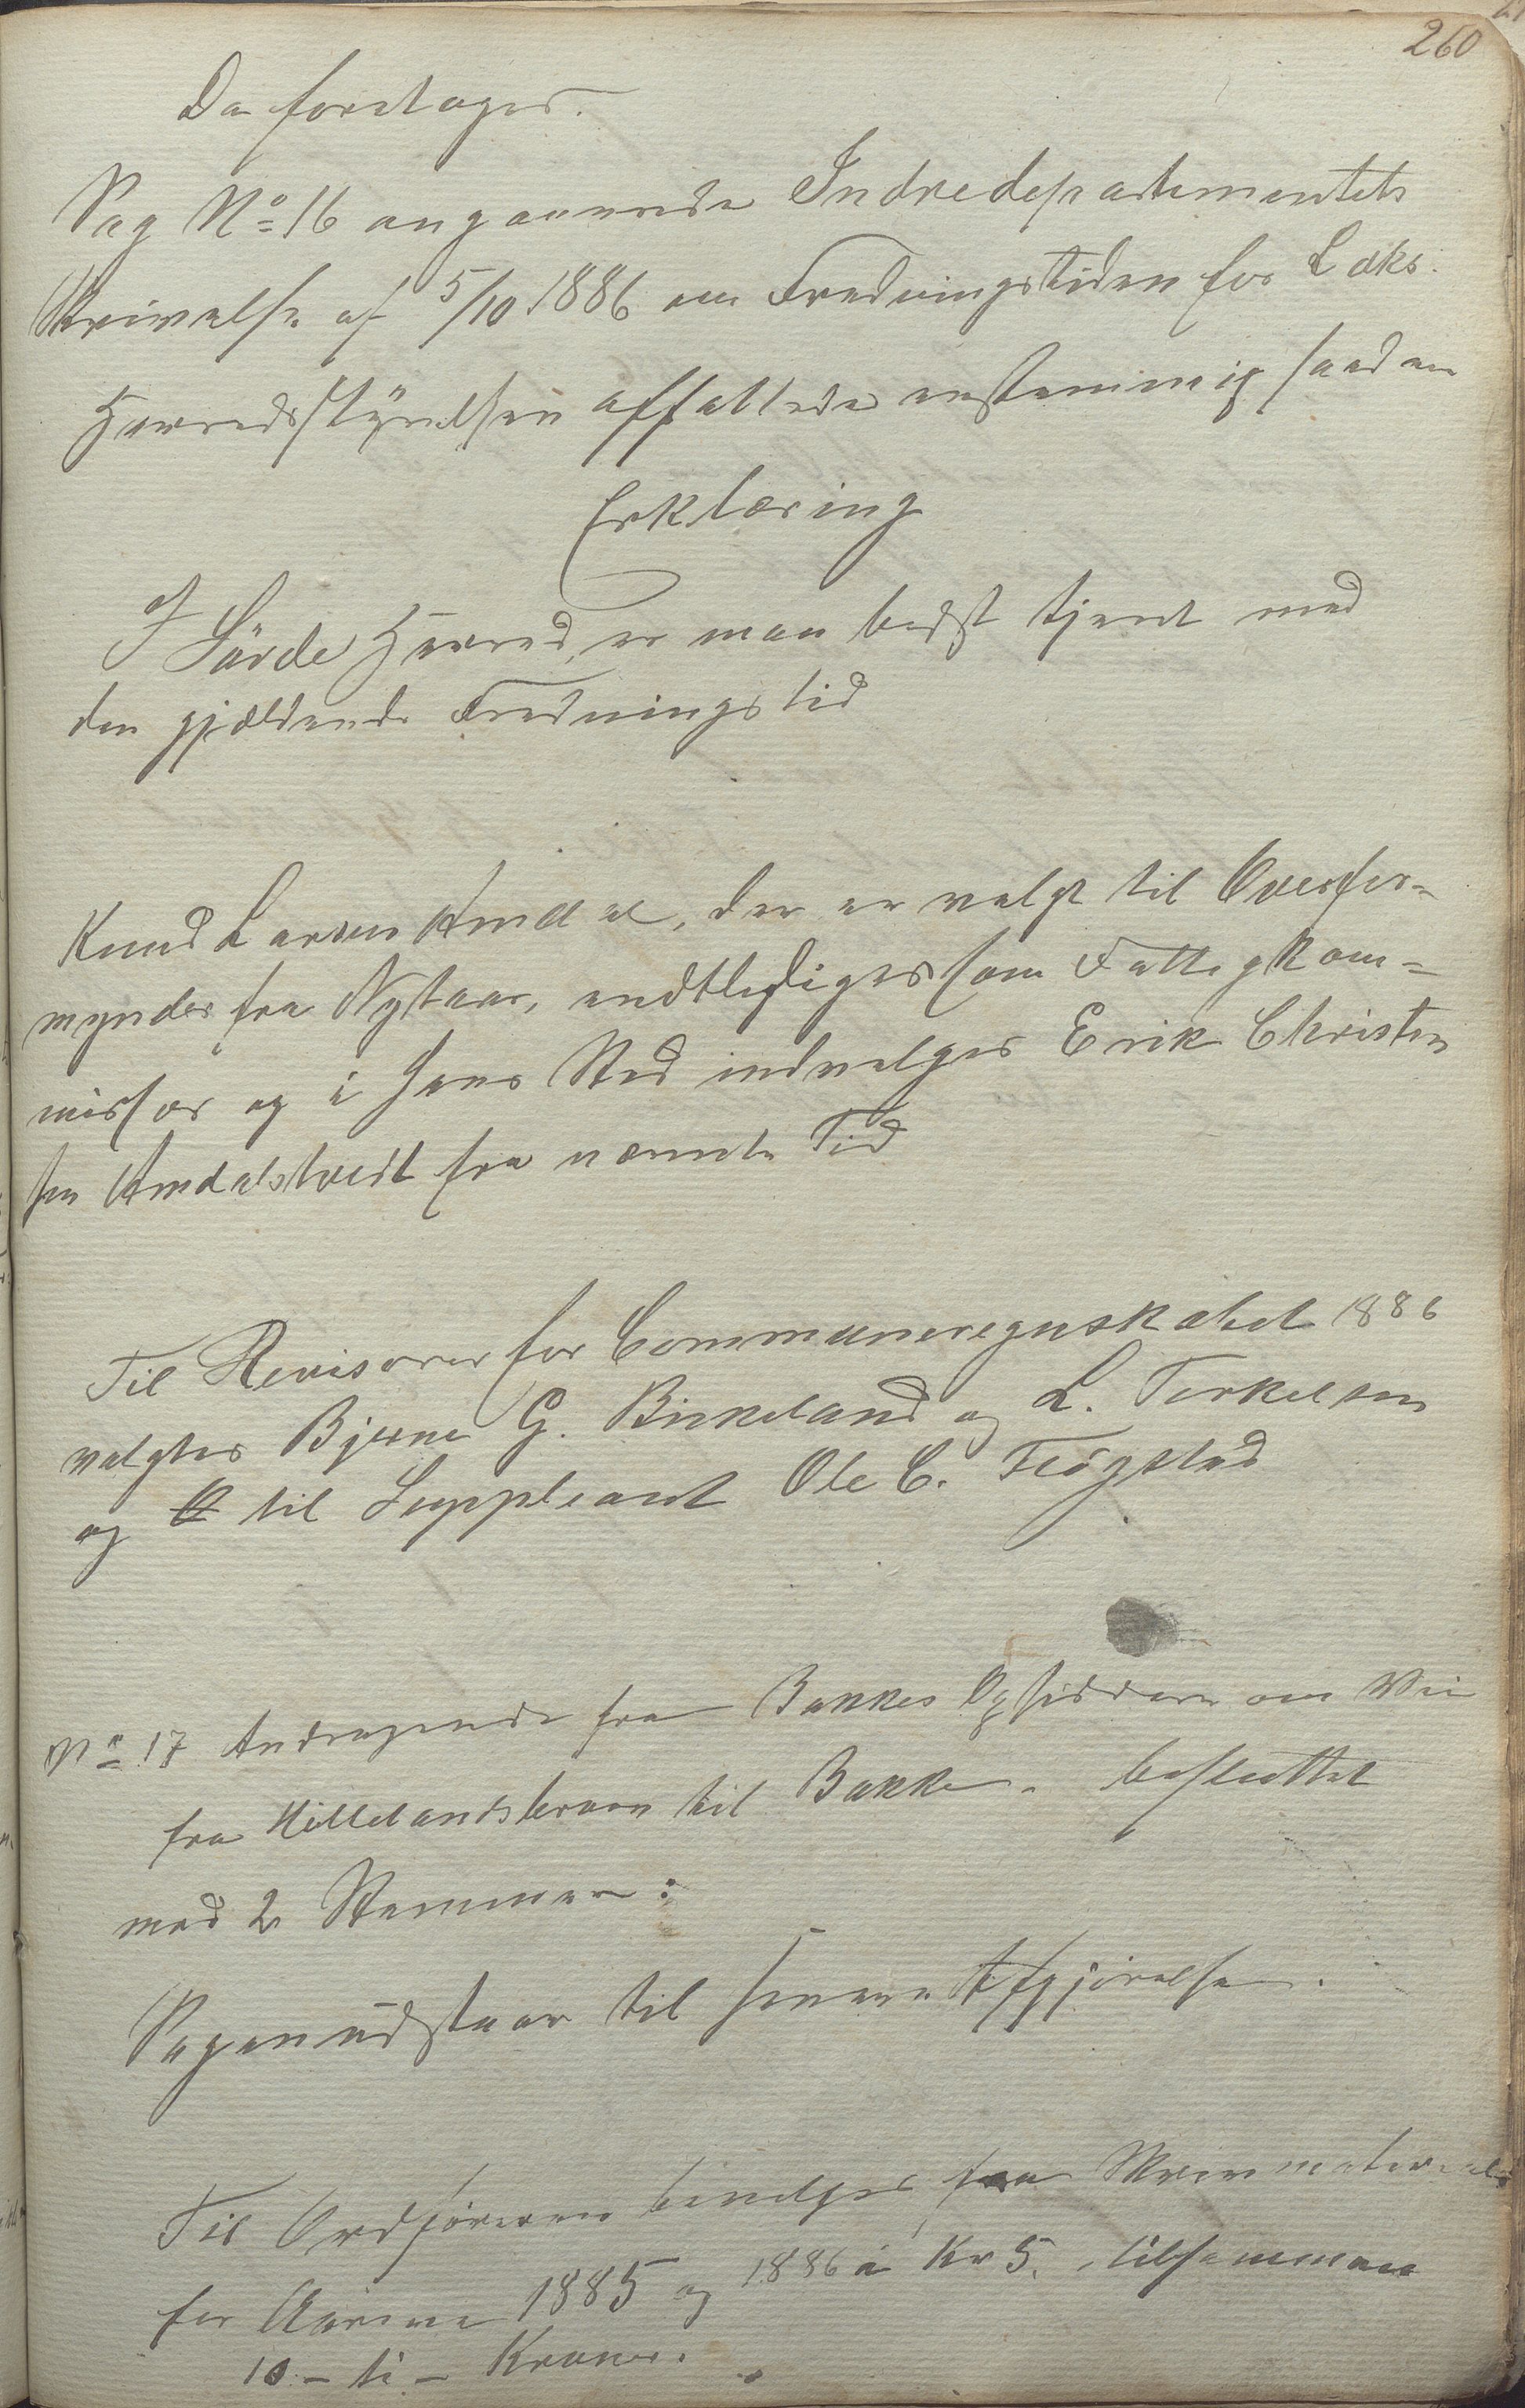 260
Da foretoges.
Sag No 16 angaaende Indredepartementets
Skrivelse af 5/10 1886 om Fredningstiden for Laks.
Herredsstyrelsen affattede enstemmig saadan
Erklæring
I Søvde Herred, er man bedst tjent med
den gjældende Fredningstid
Knud Larsen Amdal, der er valgt til Overfor-
mynder fra Nytaar, endtlediges som Fattigkom-
missær og i hans Sted indvælges Erik Christen
sen Amdalstveit fra nævnte Tid
Til Revisorer for Communeregnskabet 1886
valgtes Bjerne G. Birkeland og L. Terkelsen
og til Suppleant Ole C. Fløgstad
No 17 Andragende fra Bakkes Opsiddere om Vei
fra Hillelandsbroen til Bakke. besluttet
med 2 Stemmer:
Sagen udstaar til senere Afgjørelse.
Til Ordføreren bevilges for Skrivmaterialer
for Aarene 1885 og 1886 à Kr 5. tilsammen
10 - ti - Kroner.